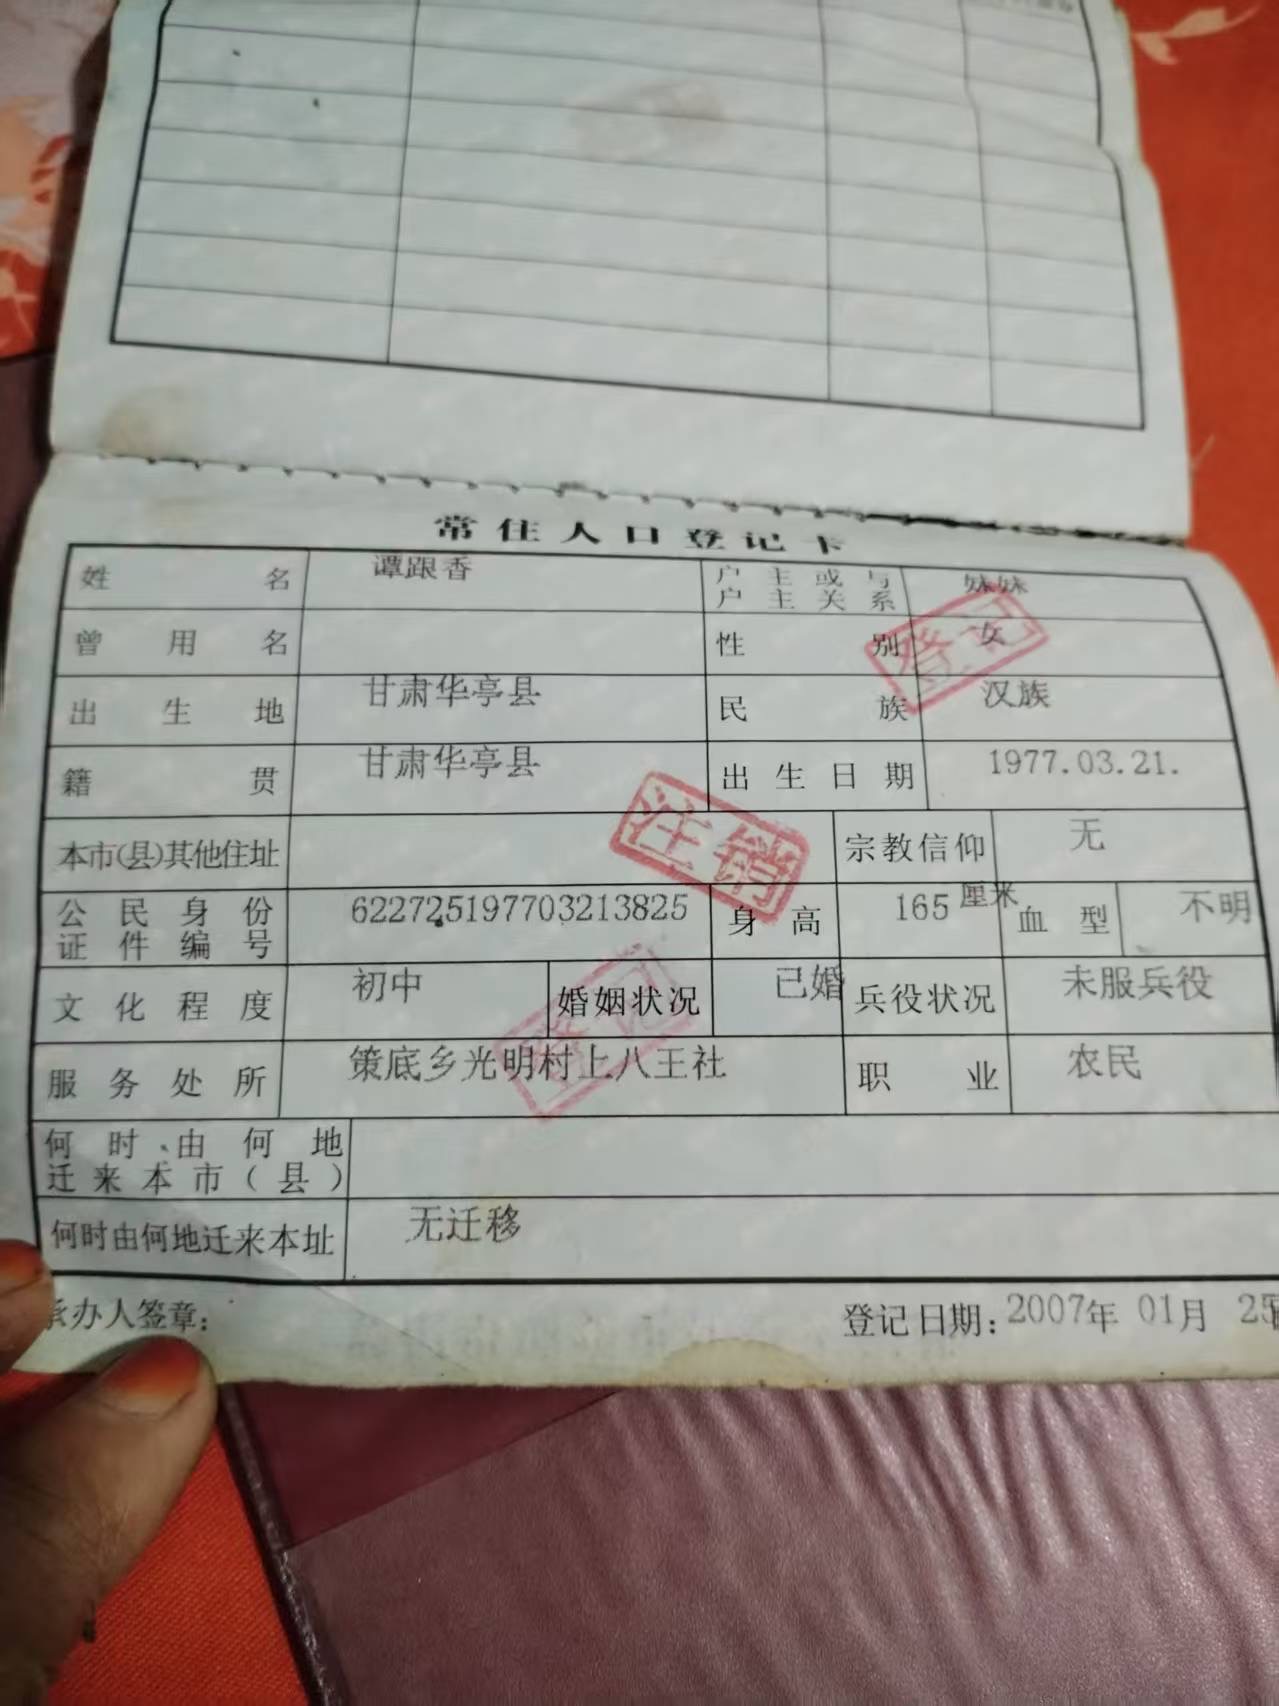 常住人口登记卡
姓名 谭跟香 户主或与户主关系 妹妹
曾用名 性别 女
登记
出生地 甘肃华亭县 民族 汉族
籍贯 甘肃华亭县 出生日期 1977.03.21.
注销
本市(县)其他住址 宗教信仰 无
公民身份证件编号 622725197703213825 身高 165厘米 血型 不明
文化程度 初中 婚姻状况 已婚 兵役状况 未服兵役
登记
服务处所 策底乡光明村上八王社 职业 农民
何时由何地迁来本市(县)
何时由何地迁来本址 无迁移
承办人签章: 登记日期: 2007年 01月 25日